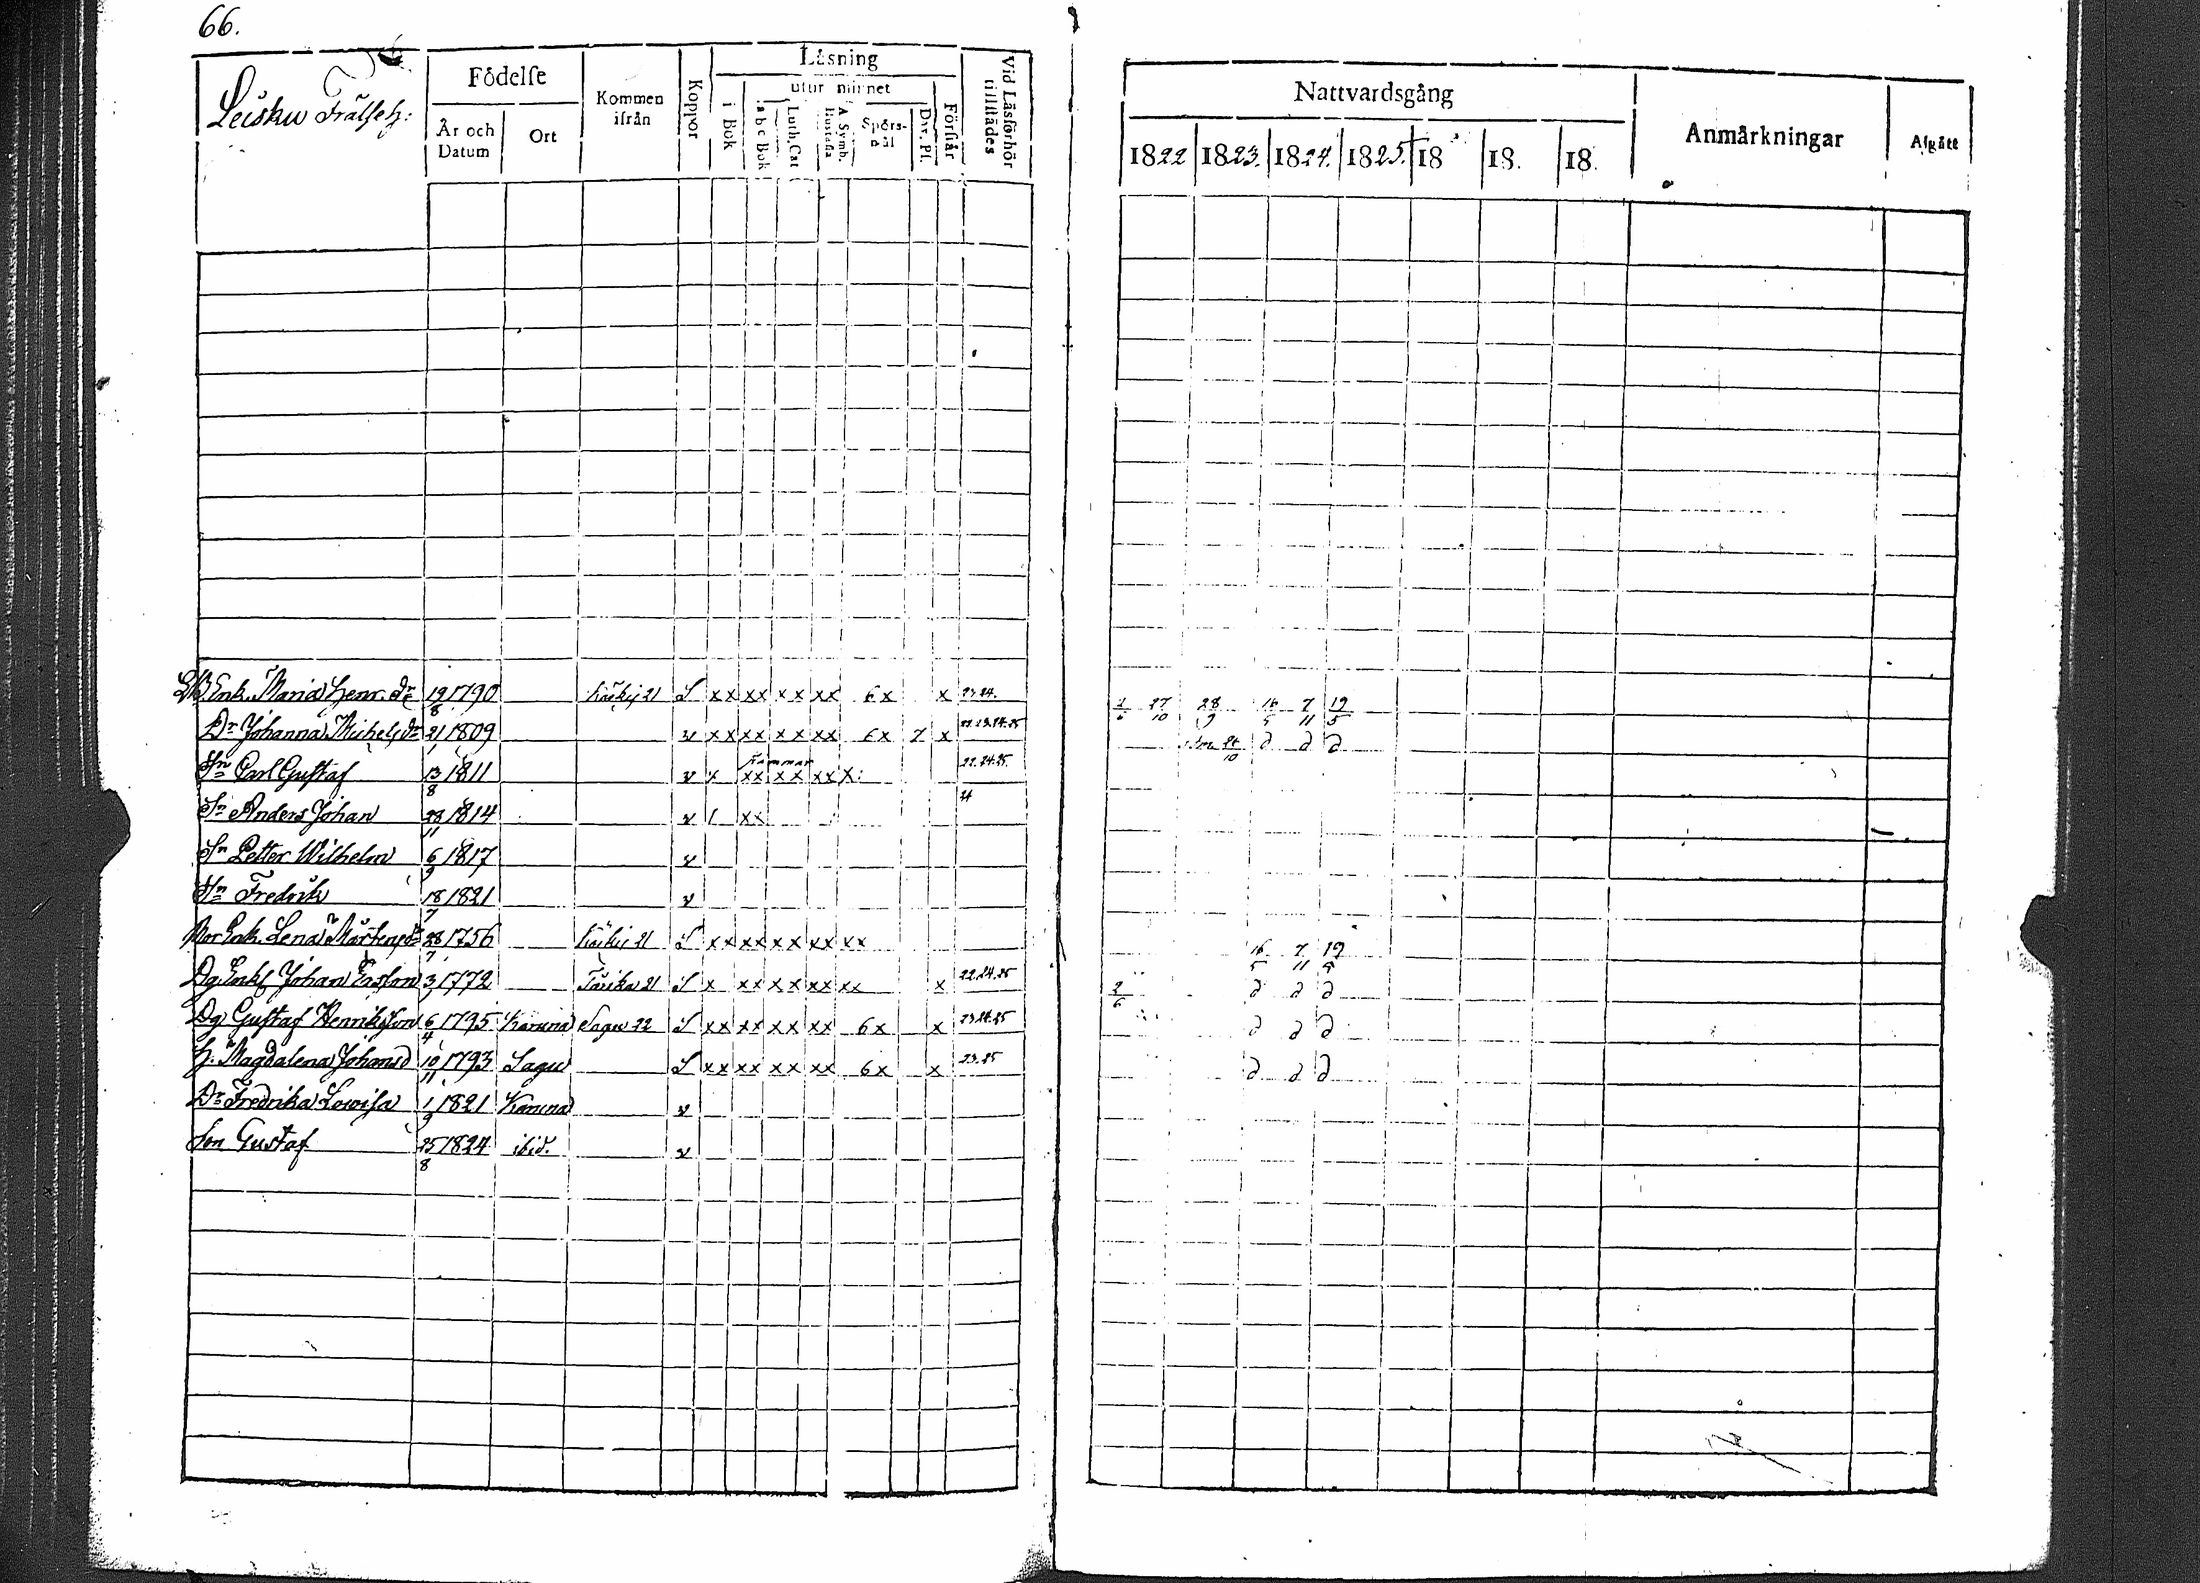 66.
Leisku Frälseh:
Födelse
År och Datum
Ort
Kommen ifrån
Koppor
Läsning
i Bok
utur minnet
a b c Bok
Luth. Cat
A. Symb. Hustafla
Spörsmål
Dav. Pl.
Förstår
Vid Läsförhör tillstädes
Nattvardsgång
1822 1823. 1824. 1825. 18 18. 18.
Anmärkningar
Afgått
Enk. Maria Henr. dr 19/8 1790 21 S x x x x x x x x 6 x x 23 24. 2/6 27/10 28/9 16/5 7/11 19/5
Dr Johanna Michelsdr 21/1 1809 v x x x x x x x x 6 x 7 x 22.23.24.25 26/10 d d d
Sn Carl Gustaf 13/8 1811 v x x x x x x x x 22.24.25.
Sn Anders Johan 28/11 1814 v / x x 24
Sn Petter Wilhelm 6/9 1817 v
Sn Fredrik 18/7 1821 v
Mor Enk. Lena Mårtensdr 28/7 1756 21 S x x x x x x x x x x 16/5 7/11 19/5
Dg. Enkl. Johan Ersson 3/1 1772 21 S x x x x x x x x x x 22.24.25 2/6 d d d
Dg Gustaf Henriksson 6/4 1795 Karuna Sagu 22 S x x x x x x x x 6 x x 23.24.25 d d d
H. Magdalena Johansd 10/11 1793 Sagu S x x x x x x x x 6 x x 23.25 d d d
Dr Fredrika Lovisa 1/9 1821 Karuna v
Son Gustaf 25/8 1824 ibid. v